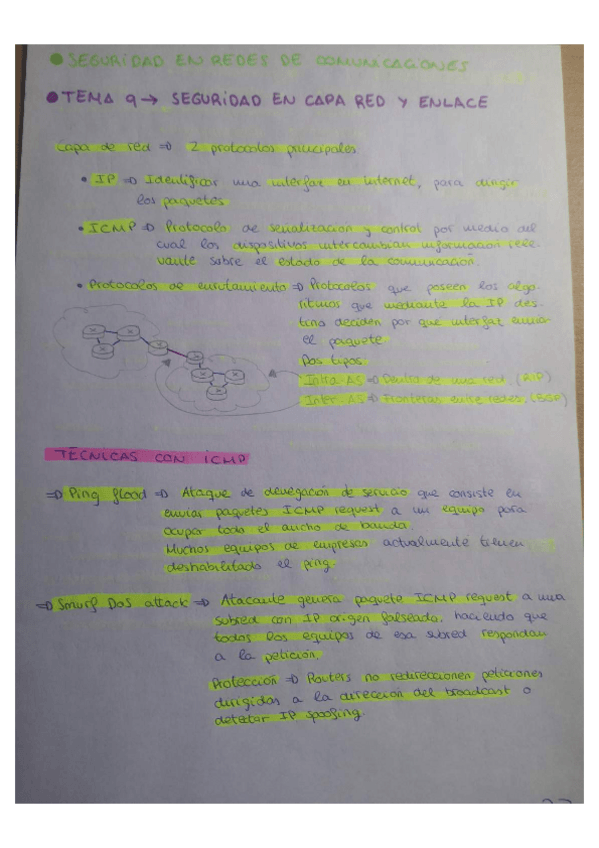 SEGURIDAD EN REDES DE COMUNICACIONES
TEMA 9 → SEGURIDAD EN CAPA RED Y ENLACE
Capa de red ⇒ 2 protocolos principales.
• IP ⇒ Identificar una interfaz en internet, para dirigir
los paquetes.
• ICMP ⇒ Protocolo de señalización y control por medio del
cual los dispositivos intercambian información rele-
vante sobre el estado de la comunicación.
• Protocolos de enrutamiento ⇒ Protocolos que poseen los algo-
ritmos que mediante la IP des-
tino deciden por que interfaz enviar
el paquete.
Dos tipos:
Intra-AS ⇒ Dentro de una red (RIP)
Inter-AS ⇒ Fronteras entre redes (BGP)
TÉCNICAS CON ICMP
⇒ Ping flood ⇒ Ataque de denegación de servicio que consiste en
enviar paquetes ICMP request a un equipo para
ocupar todo el ancho de banda.
Muchos equipos de empresas actualmente tienen
deshabilitado el ping.
⇒ Smurf DoS attack ⇒ Atacante genera paquete ICMP request a una
subred con IP origen falseada, haciendo que
todos los equipos de esa subred respondan
a la petición.
Protección ⇒ Routers no redireccionen peticiones
dirigidas a la dirección del broadcast o
detectar IP spoofing.